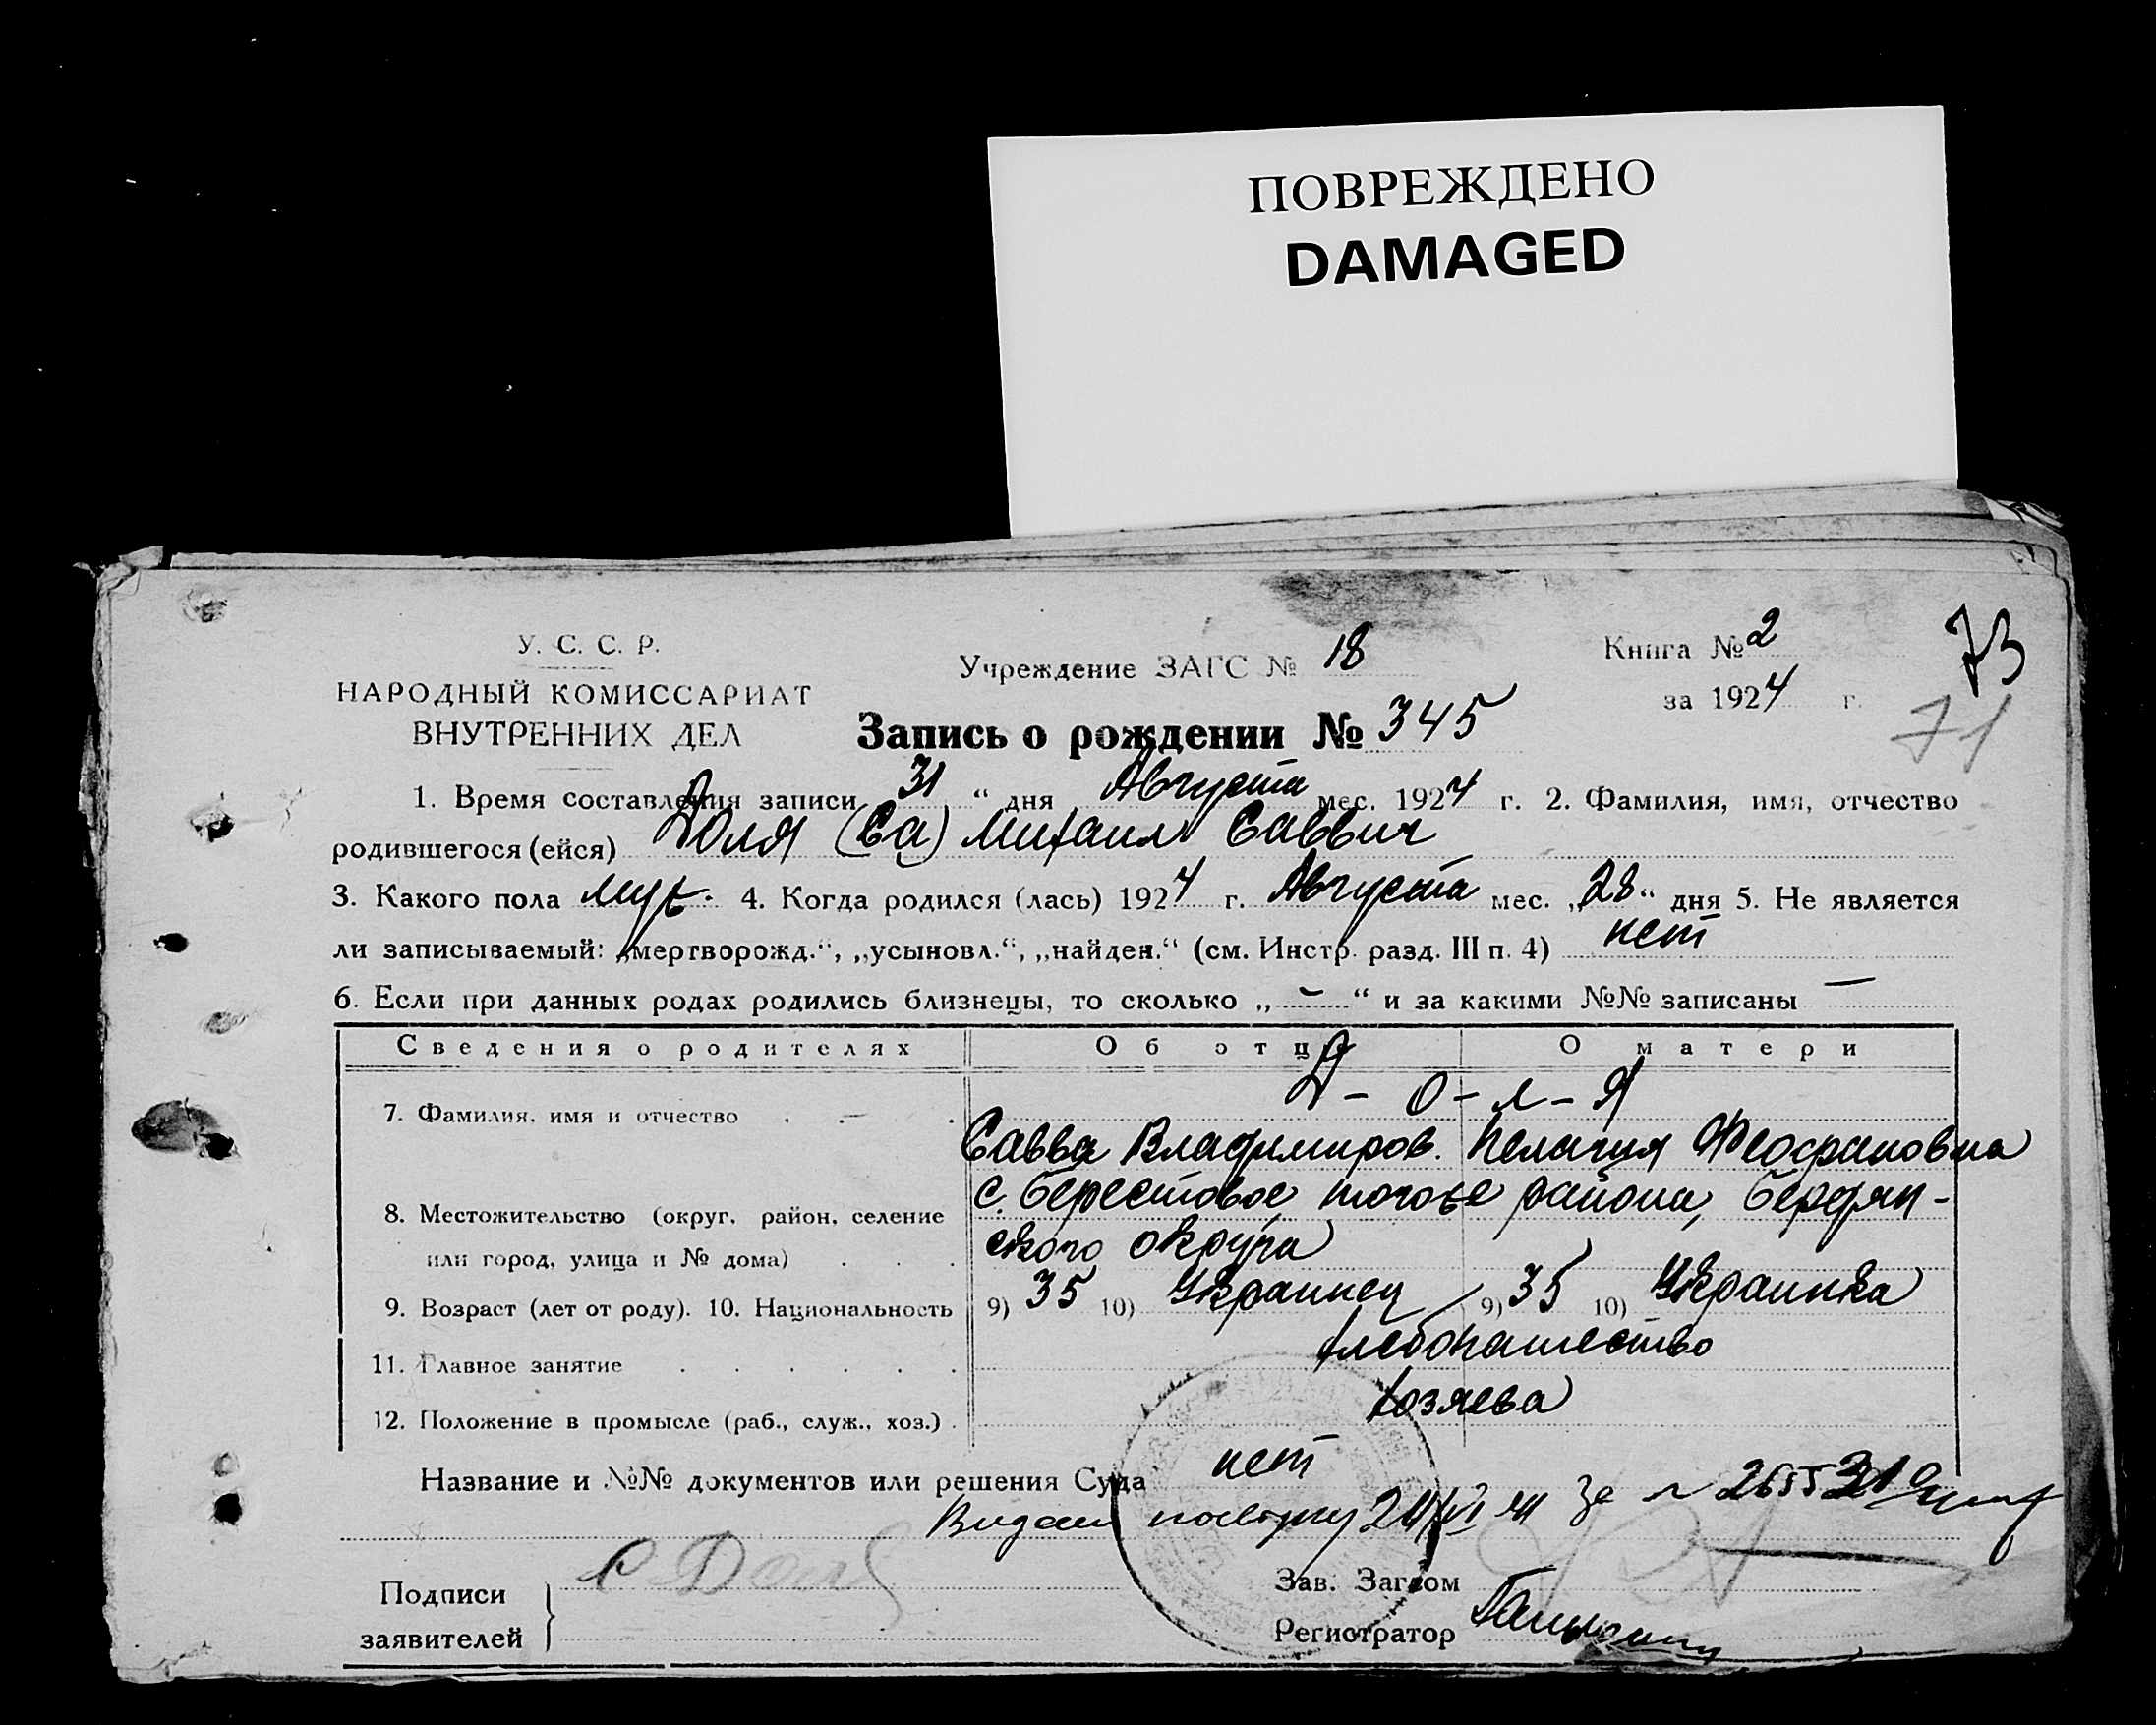 ПОВРЕЖДЕНО
DAMAGED
У. С. С. Р.
НАРОДНЫЙ КОМИССАРИАТ
ВНУТРЕННИХ ДЕЛ
Учреждение ЗАГС № 18
Книга № 2
за 1924 г.
73
71
Запись о рождении № 345
1. Время составления записи 31 “ дня Августа мес. 1924 г. 2. Фамилия, имя, отчество
родившегося (ейся) Доля (Са) Михаил Саввич
3. Какого пола муж. 4. Когда родился (лась) 1924 г. Августа мес. „28“ дня 5. Не является
ли записываемый: „мертворожд.“, „усыновл.“, „найден.“ (см. Инстр. разд. III п. 4) нет
6. Если при данных родах родились близнецы, то сколько „ — “ и за какими №№ записаны —
Сведения о родителях Об отце О матери
7. Фамилия, имя и отчество Д - о - л - я
Савва Владимиров. Пелагия Феофановна
8. Местожительство (округ, район, селение с. Берестовое, того же района, Бердян-
или город, улица и № дома) ского округа
9. Возраст (лет от роду). 10. Национальность 9) 35 10) Украинец 9) 35 10) Украинка
11. Главное занятие хлебопашество
12. Положение в промысле (раб., служ., хоз.) хозяева
Название и №№ документов или решения Суда нет
24/VI 41 За №
Подписи
заявителей
С Доля
Зав. Загсом
Регистратор